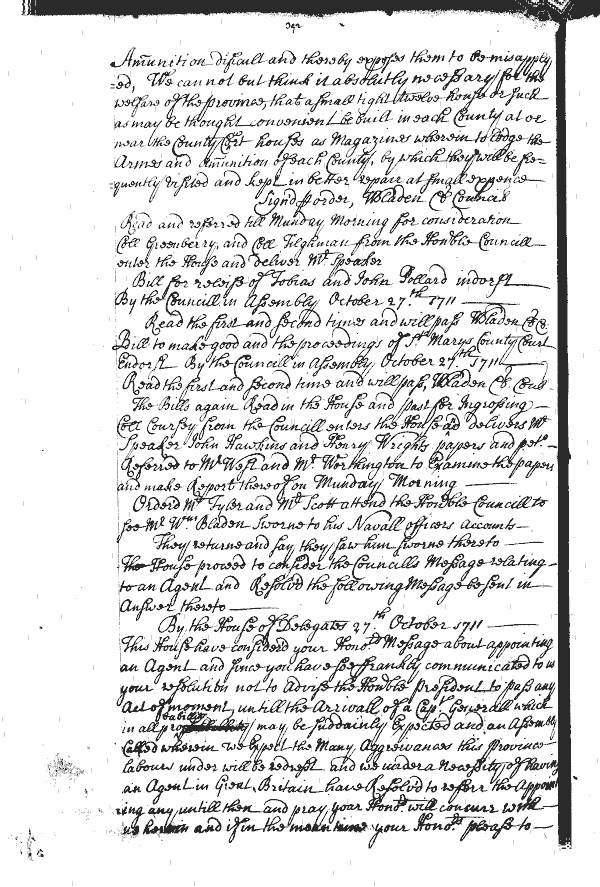 342
Am̃unition difficult and thereby exposes them to be misapply
=ed, We cannot but think it absolutely necessary for the
welfare of the Province, that a small tight twelve house or such
as may be thought convenient be built in each County at or
near the County Court houses as Magazines wherein to lodge the
Armes and am̃unition of each County, by which they will be fre=
quently visited and kept in better repair at small expence
Signd p order, WBladen Cl Council
Read and referred till Munday Morning for consideration
Coll Greenberry, and Coll Tilghman from the Honble Councill
enter the House and deliver Mr Speaker
Bill for releise of Tobias and John Pollard indorst
By the Councill in Assembly October 27.th 1711
Read the first and second times and will pass WBladen Cl C
Bill to make good and the proceedings of St Marys County Court
Endorst By the Council in Assembly October 27.th 1711
Read the first and second time and will pass, WBladen Cl Coun
The Bills again Read in the House and past for Ingrossing
Coll Coursey from the Councill enters the House and delivers Mr
Speaker John Hawkins and Henry Wrights papers and petn
Referred to Mr West and Mr Worthington to Examine the papers
and make Report thereof on Munday Morning
Orderd Mr Tyler and Mr Scott attend the Honble Councill to
see Mr Wm Bladen Sworne to his Navall officers accounts
They returne and say they saw him sworne thereto
The House proceed to consider the Councills Message relating
to an Agent and Resolvd the following Message be sent in
Answer thereto
By the House of Delegates 27.th October 1711
This House have considerd your Honors Message about appointing
an Agent and since you have soe frankly communicated to us
your resolution not to advise the Honble President to pass any
Act of moment, untill the Arrivall of a Capt Generall which
in all probability may be suddainly Expected and an Assembly
called wherein we Expect the Many Aggreivances this Province
labours under will be redrest and we under a necessity of having
an Agent in Great Britain have Resolvd to referr the Appoint
ing any untill then and pray your Honrs will concurr with
us herein and if in the mean time your Honrs please to